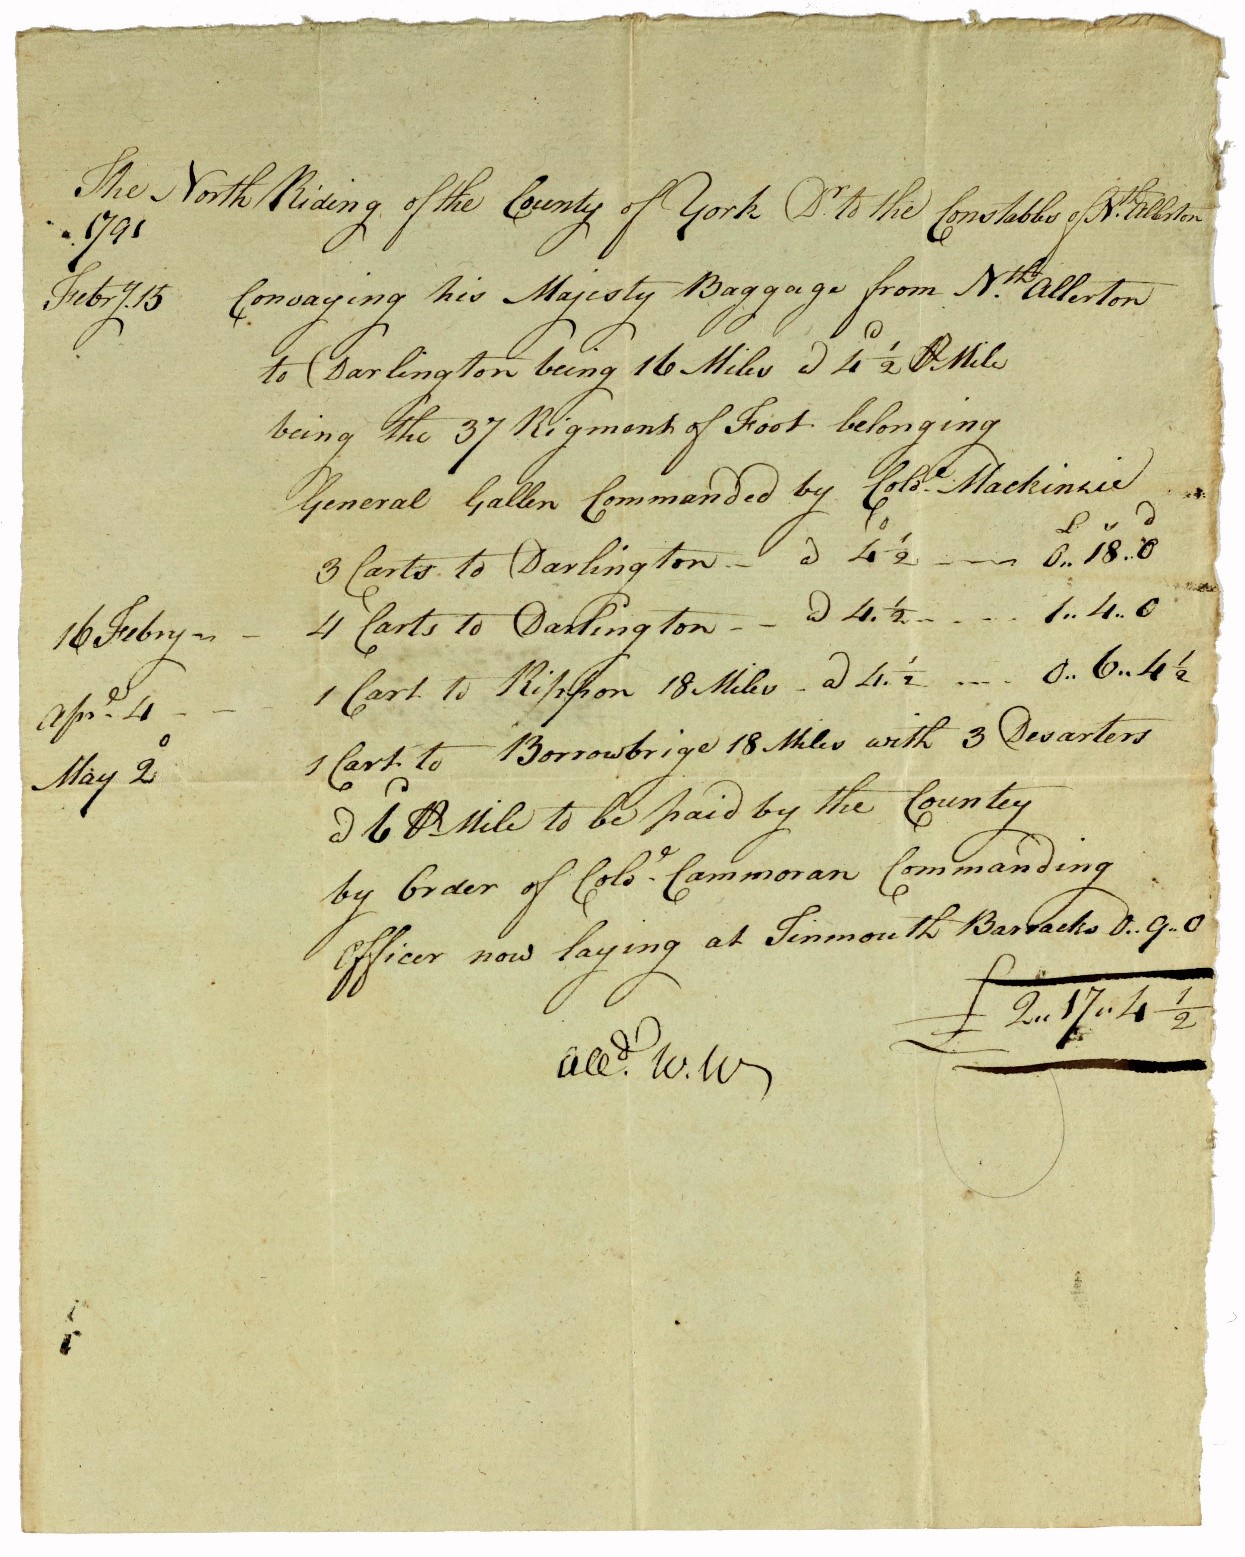 The North Riding of the County of York Dr. to the Constables of Nth. Allerton
1791
Febry. 15 Convaying his Majesty Baggage from Nth. Allerton
to Darlington being 16 Miles a 4 1/2 d ⅌ Mile
being the 37 Rigment of Foot belonging
General Gallen Commanded by Cold. Mackinzie
£ s d
3 Carts to Darlington - a 4 1/2 d --- 0..18..0
16 Febry - - 4 Carts to Darlington - - a 4.1/2 - - - - 1..4..0
Apr. 4 - - - 1 Cart to Rippon 18 Miles - a 4.1/2 ---- 0..6..4 1/2
May 2 1 Cart to Borrowbrige 18 Miles with 3 Desarters
a 6 d ⅌ Mile to be paid by the Countey
by Order of Cold. Cammoran Commanding
Officer now laying at Tinmouth Barracks 0..9..0
£ 2..17..4 1/2
All'd. W. W